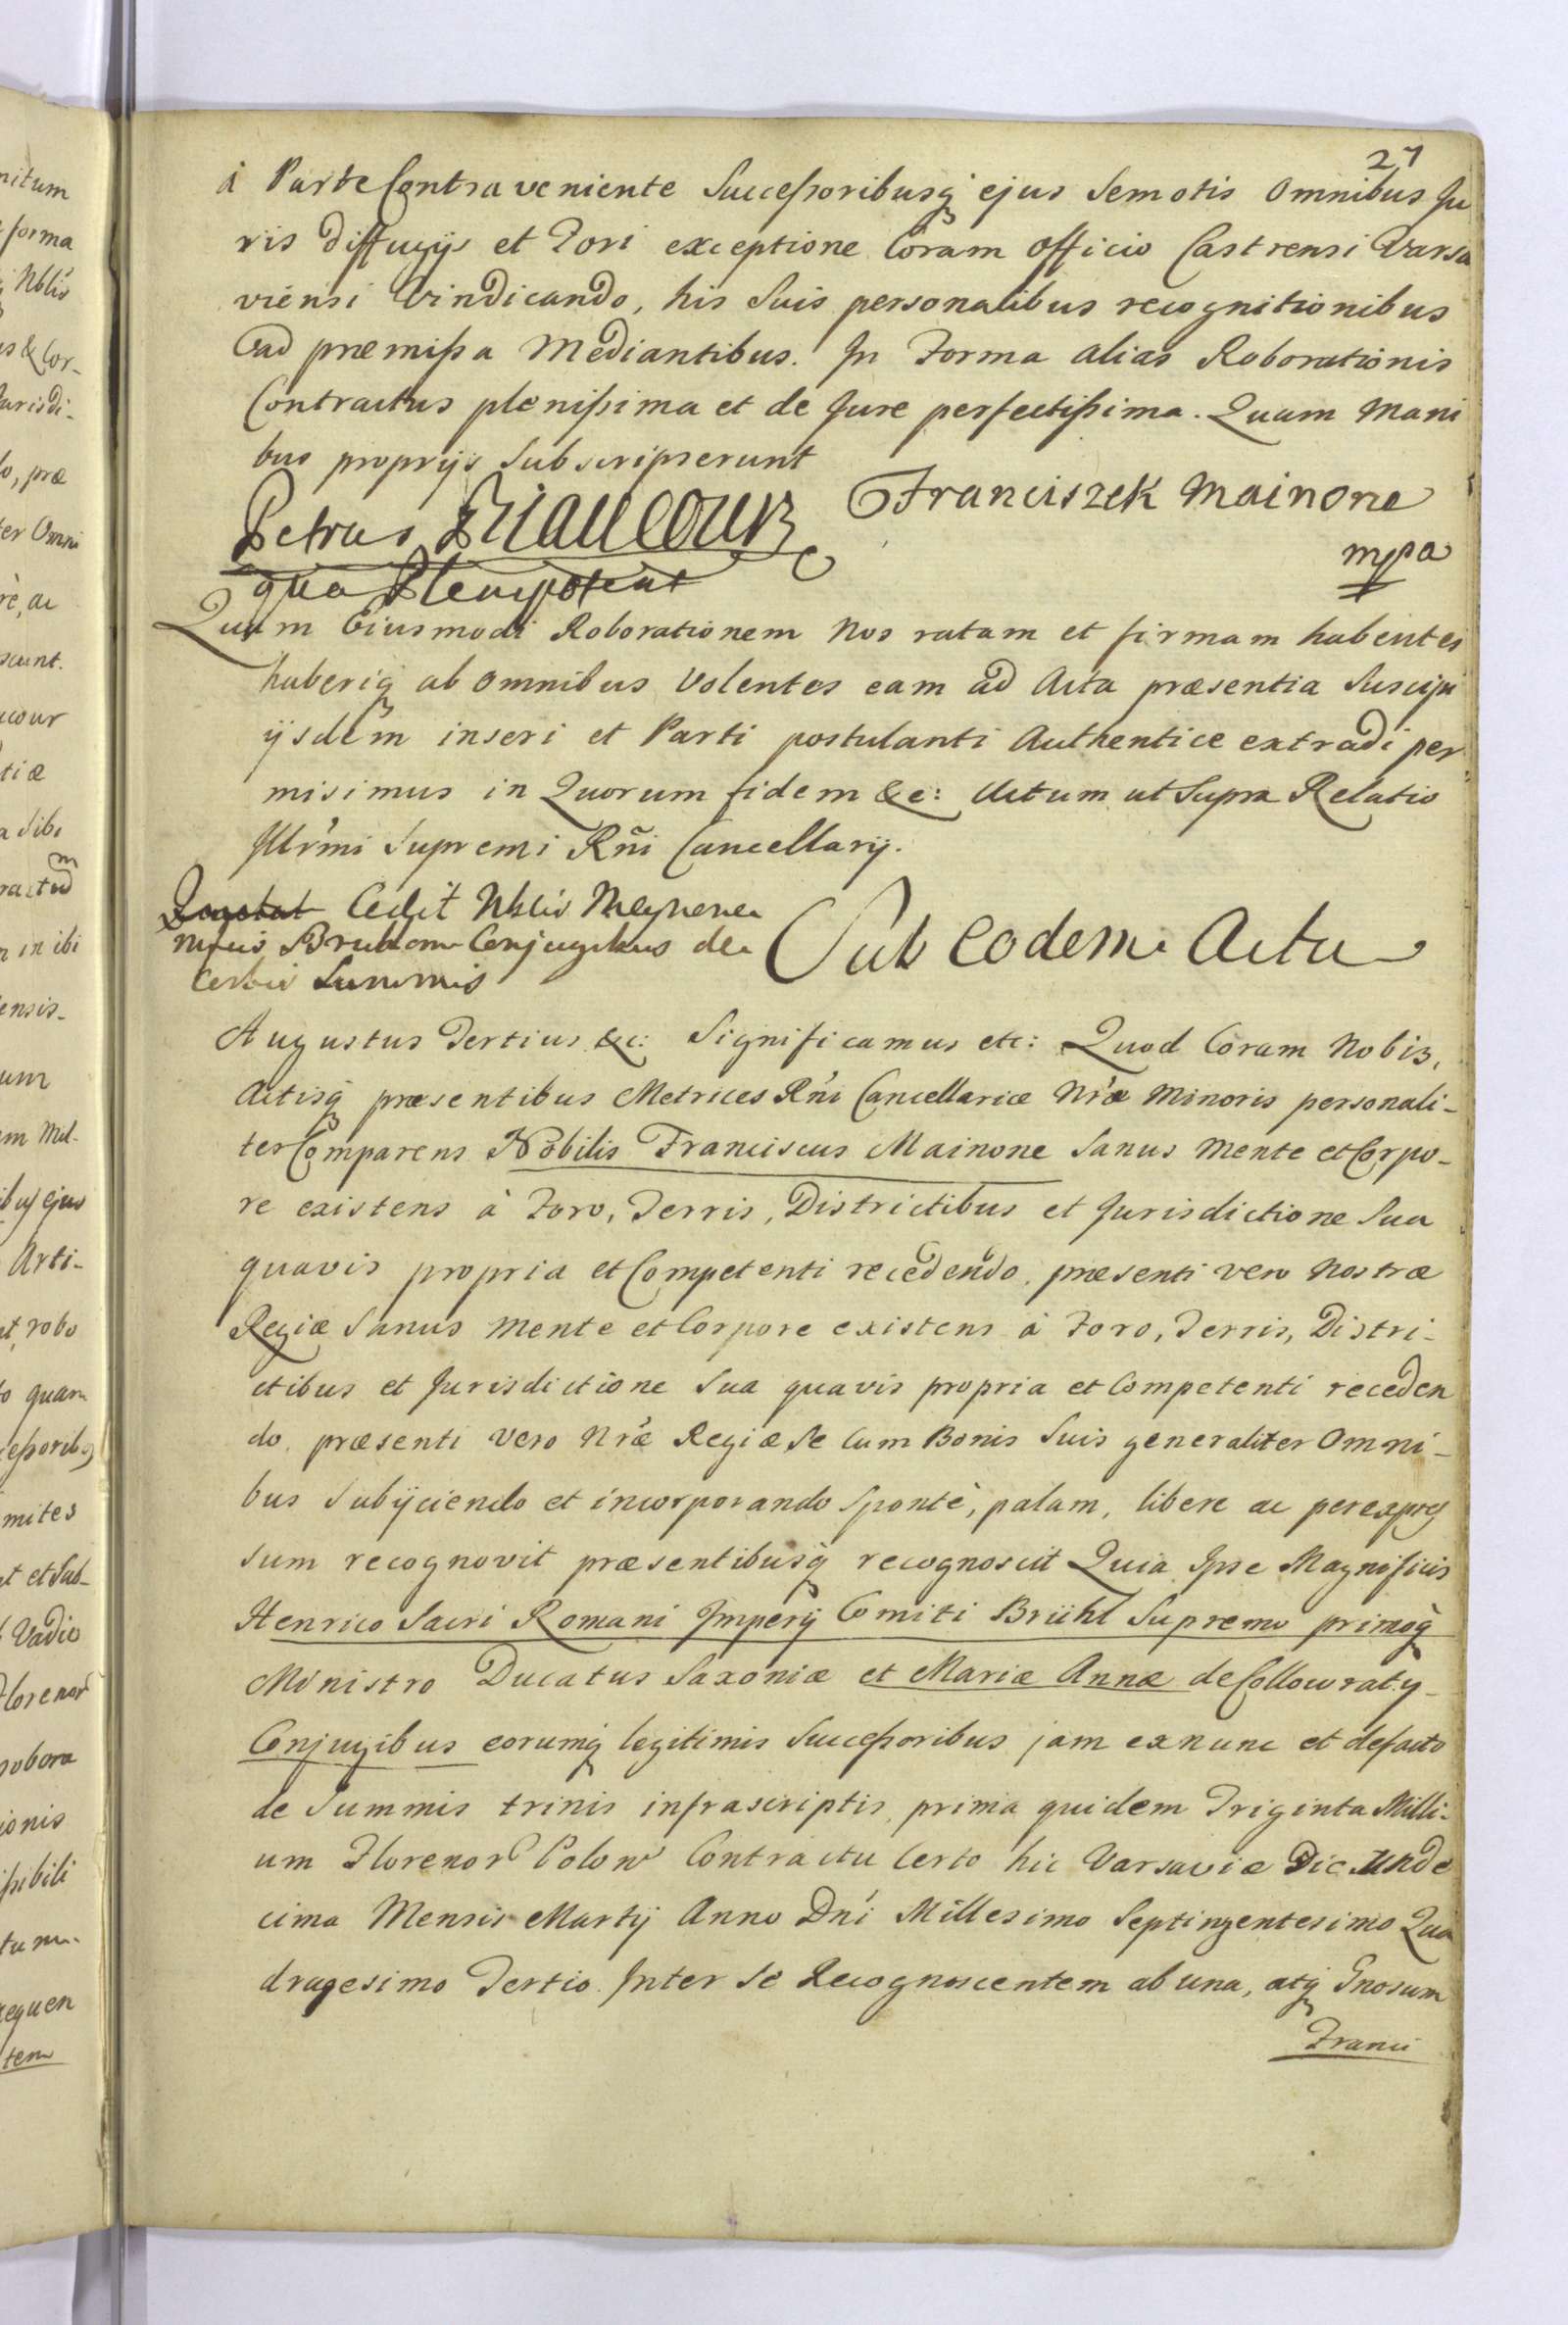 27
à Parte Contraveniente Succeßoribusq ejus Semotis Omnibus Ju
ris Diffugijs et Fori exceptione Coram Officio Castrensi Varsa
viensi Vindicando, his Suis personalibus recognitionibus
ad præmißa Mediantibus. In Forma alias Roborationis
Contractus plenißima et de Jure perfectißima. Quam Mani
bus proprijs Subscripserunt
Petrus Riaucour
qua Plenipotent
Franciszek Mainone
mpa
Quam Eiusmodi Roborationem Nos ratam et firmam habentes
haberiq ab omnibus Volentes eam ad Acta præsentia Suscipi
ijsdem inseri et Parti postulanti Authentice extradi per
misimus in Quorum fidem &c: Actum ut Supra Relatio
Illr̃mi Supremi Rñi Cancellarij.
Cedit Nblis Meynone
Mfcis Bruhlom Conjugibus de
certis Summis
Sub eodem Actu
Augustus Tertius &c: Significamus etc: Quod Coram Nobis,
Actisq præsentibus Metrices Rñi Cancellariæ Nr̃æ Minoris personali-
ter Comparens Nobilis Franciscus Mainone Sanus Mente et Corpo-
re existens à Foro, Terris, Districtibus et Jurisdictione Sua
quavis propria et Competenti recedendo, præsenti vero Nostræ
Regiæ Sanus Mente et Corpore existens à Foro, Terris, Distri-
ctibus et Jurisdictione Sua quavis propria et Competenti receden
do, præsenti vero Nr̃æ Regiæ Se Cum Bonis Suis generaliter Omni-
bus Subijciendo et incorporando Spontè, palam, libere ac per expres
sum recognovit præsentibusq recognoscit Quia Ipse Magnificis
Henrico Sacri Romani Imperij Comiti Brühl Supremo primoq
Ministro Ducatus Saxoniæ et Mariæ Annæ de Collowraty
Conjugibus eorumq legitimis Succeßoribus jam ex nunc et de facto
de Summis trinis infrascriptis, prima quidem Triginta Milli-
um Florenor Polon Contractu Certo hic Varsaviæ Die Unde
cima Mensis Martij Anno Dñi Millesimo Septingentesimo Qua
dragesimo Tertio Inter Se Recognoscentem ab una, atq Gnosum
Franci